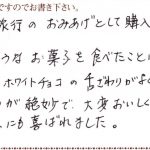 ですのでお書き下さい。
旅行の おみあげとして購入
うな お菓子 を 食べたことに
ホワイトチョコ の 舌ざわりが
が絶妙で、大変おいしく
にも 喜ばれました。